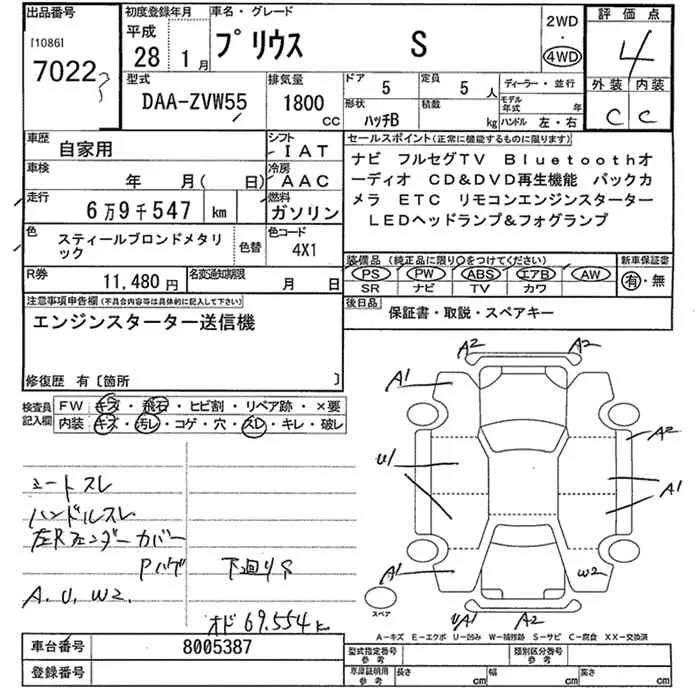 出品番号
[1086]
7022
初度登録年月
平成
28年 1月
車名・グレード
プリウス S
2WD
・
4WD
評価点
4
外装 内装
C C
型式
DAA-ZVW55
排気量
1800
CC
ドア
5
定員
5 人
ディーラー・並行
形状
ハッチB
積載
kg
モデル年式 年
ハンドル 左・右
車歴
自家用
シフト
IAT
車検
年 月( 日)
冷房
AAC
走行
6万9千547 km
燃料
ガソリン
色
スティールブロンドメタリック
色替
色コード
4X1
R券
11,480円
名変通知期限
月 日
セールスポイント(正常に機能するものに限ります)
ナビ フルセグTV Bluetoothオ
ーディオ CD&DVD再生機能 バックカ
メラ ETC リモコンエンジンスターター
LEDヘッドランプ&フォグランプ
装備品(純正品に限り○をつけてください)
PS PW ABS エアB AW
SR ナビ TV カワ
新車保証書
有・無
後日品
保証書・取説・スペアキー
注意事項申告欄(不具合内容等は具体的に記入して下さい)
エンジンスターター送信機
修復歴 有〔箇所 〕
検査員記入欄
FW キズ・飛石・ヒビ割・リペア跡・×要
内装 キズ・汚レ・コゲ・穴・スレ・キレ・破レ
シートスレ
ハンドルスレ
左Rフェンダーカバー
Pハゲ
下回りサ
A.U.W2.
オド 69.554k
A2 A2
A1
A2
U1
A1
A1
W2
UA1 A2
スペア
A-キズ E-エクボ U-凹み W-補修跡 S-サビ C-腐食 XX-交換済
車台番号
8005387
登録番号
型式指定番号
参考
類別区分番号
参考
車庫証明用
参考
長さ cm
幅 cm
高さ cm